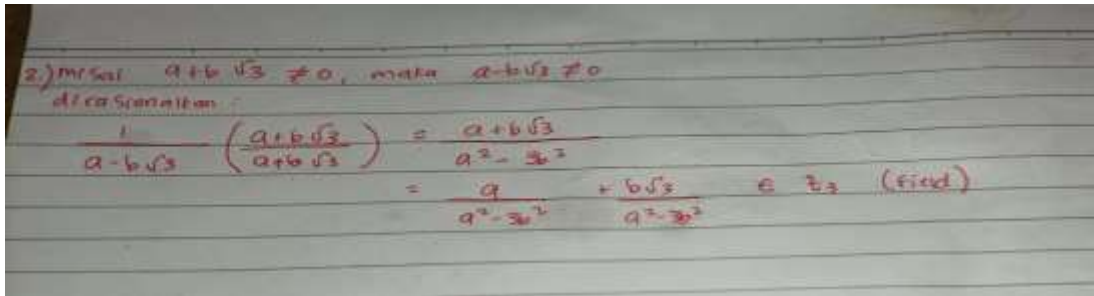 2.) misal a+b√3 ≠ 0, maka a-b√3 ≠ 0
dirasionalkan :
1/(a-b√3) ((a+b√3)/(a+b√3)) = (a+b√3)/(a² - 3b²)
= a/(a²-3b²) + b√3/(a²-3b²) ∈ Z₃ (field)